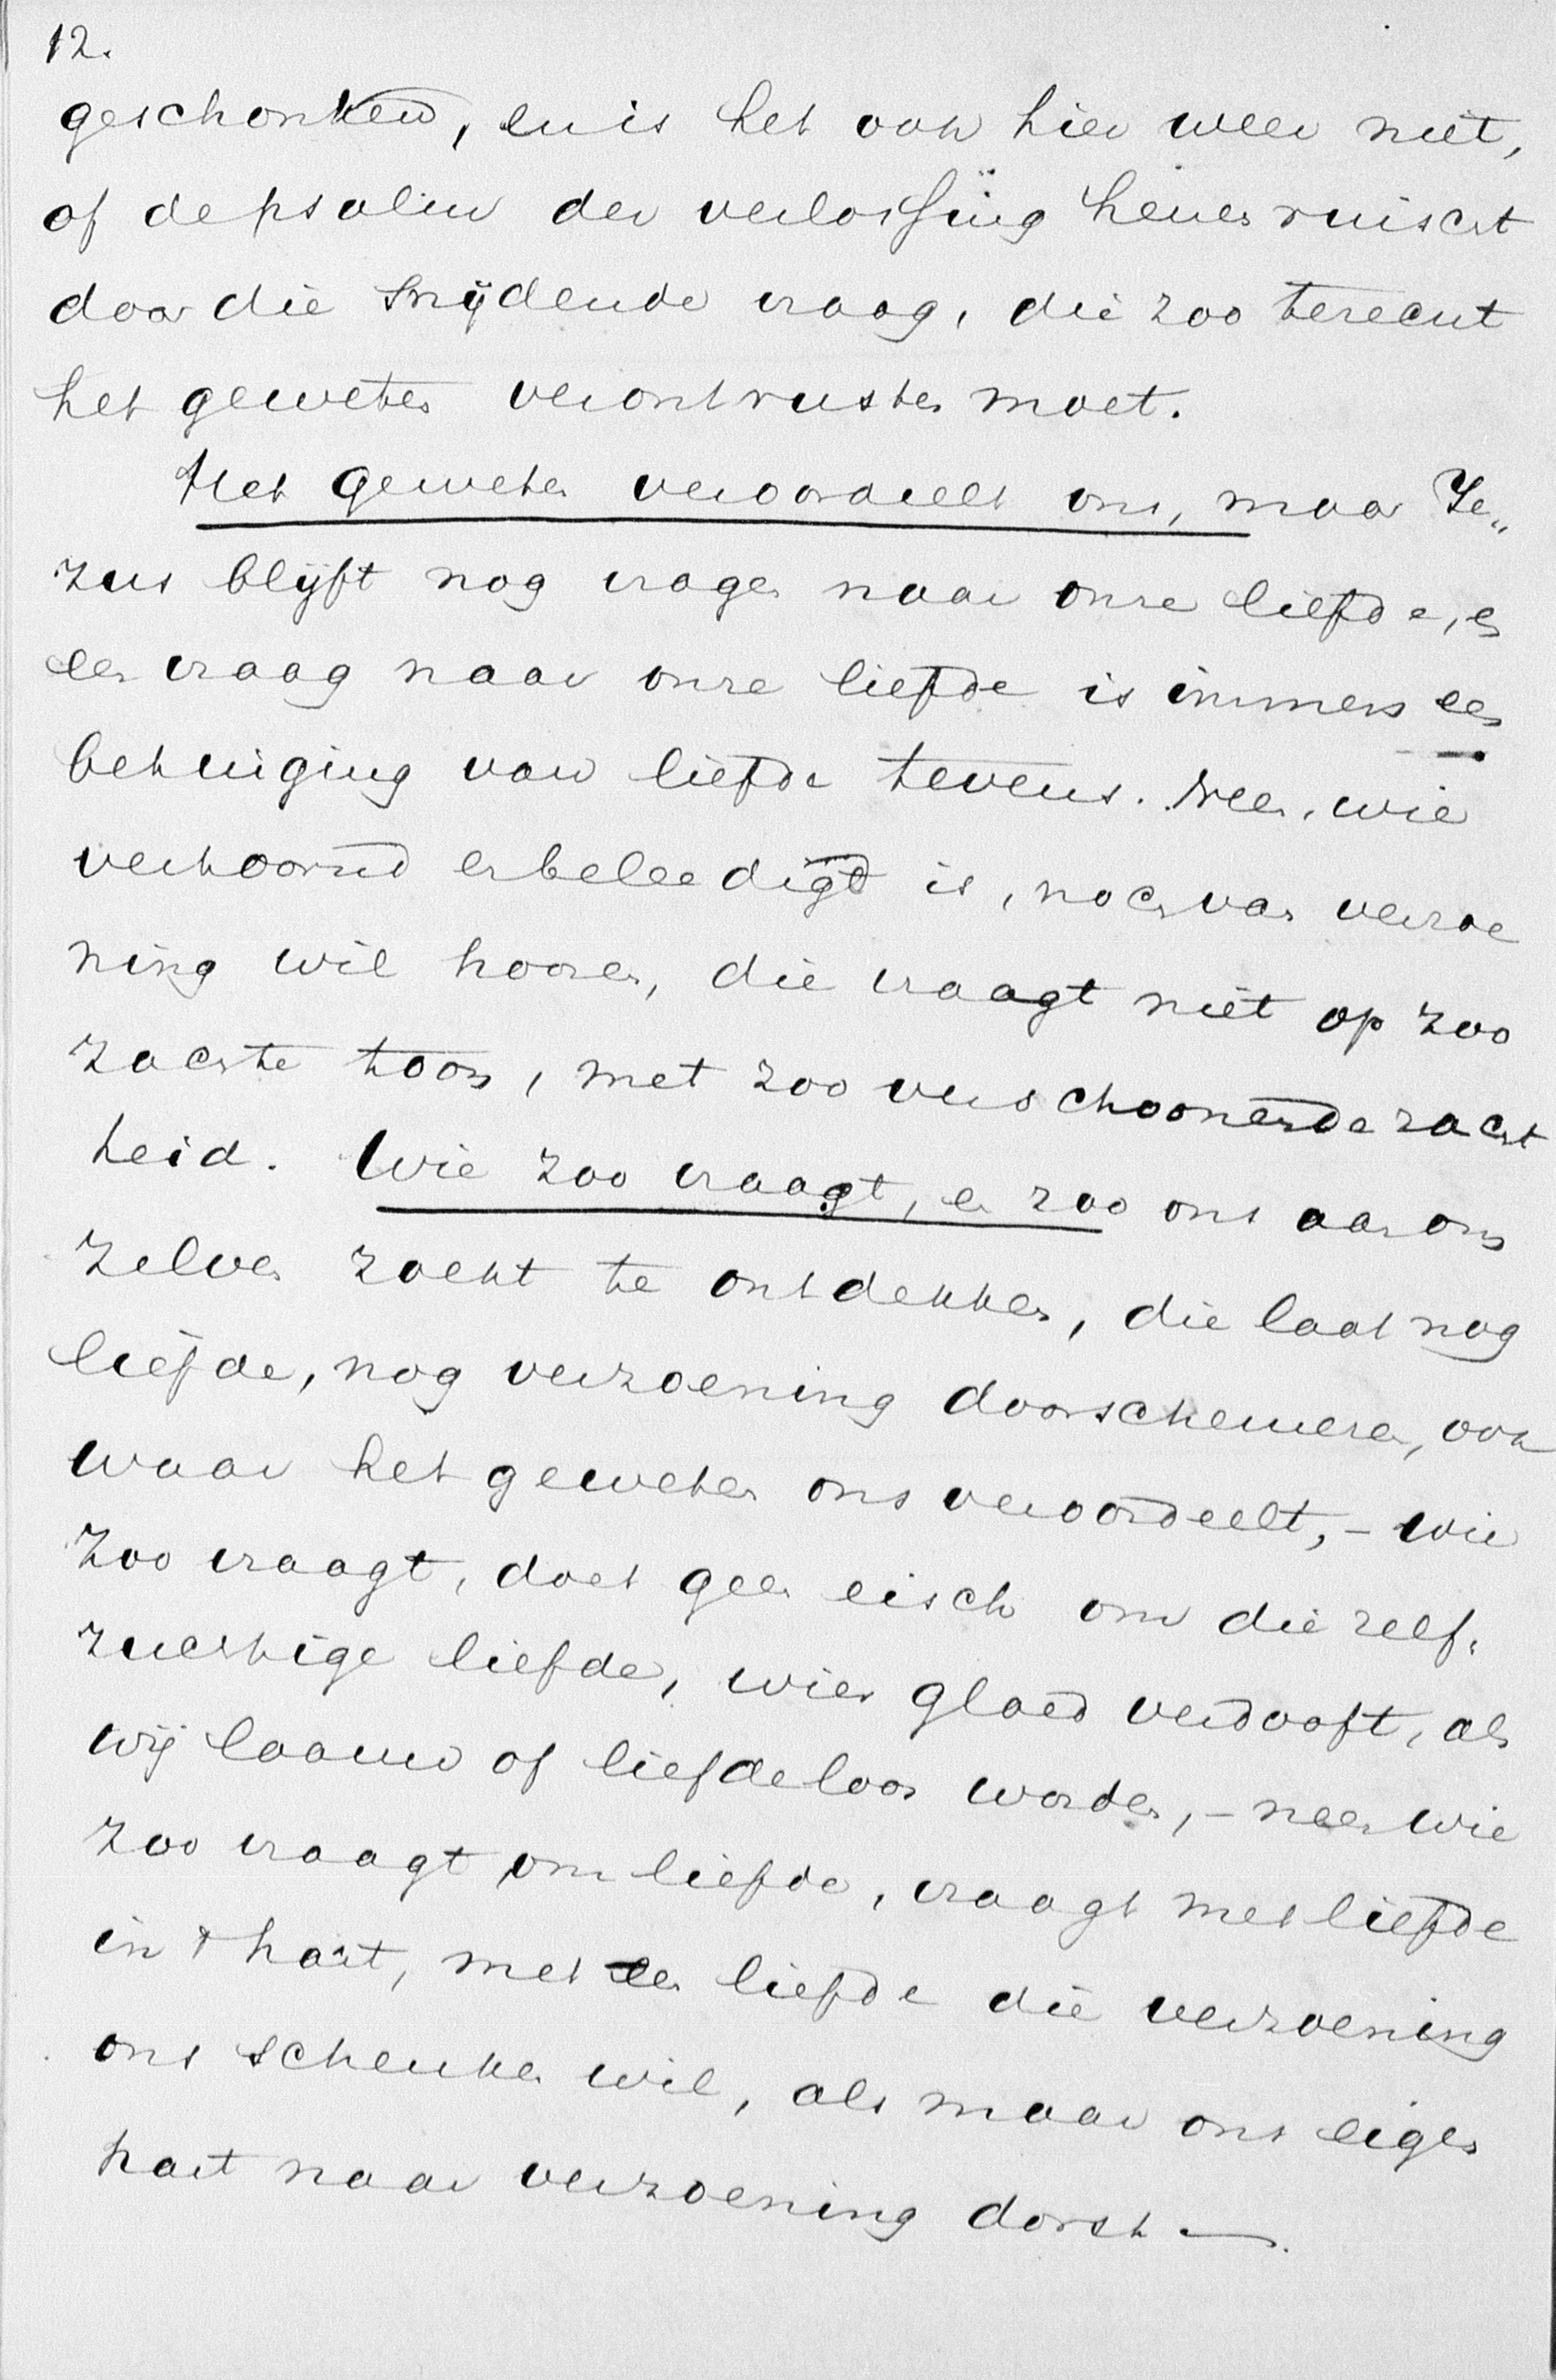 12.
geschonken, en is het ook hier weer niet,
of de psalm der verlossing henen ruischt
door die snijdende vraag, die zoo terecht
het geweten verontrusten moet.
Het geweten veroordeelt ons, maar Je„
zus blijft nog vragen naar onze liefde, en
een vraag naar onze liefde is immers een
betuiging van liefde tevens. Neen, wie
vertoornd en beleedigd is, noch van verzoe
ning wil hooren, die vraagt niet op zoo
zachte toon, met zoo verschoonende zacht
heid. Wie zoo vraagt, en zoo ons aan ons
zelven zoekt te ontdekken, die laat nog
liefde, nog verzoening doorschemeren, ook
waar het geweten ons veroordeelt, – wie
zoo vraagt, doet geen eisch om die zelf-
zuchtige liefde, wier gloed verdooft, als
wij laauw of liefdeloos worden, – neen wie
zoo vraagt om liefde, vraagt met liefde
in 't hart, met een liefde die verzoening
ons schenken wil, als maar ons eigen
hart naar verzoening dorst —.